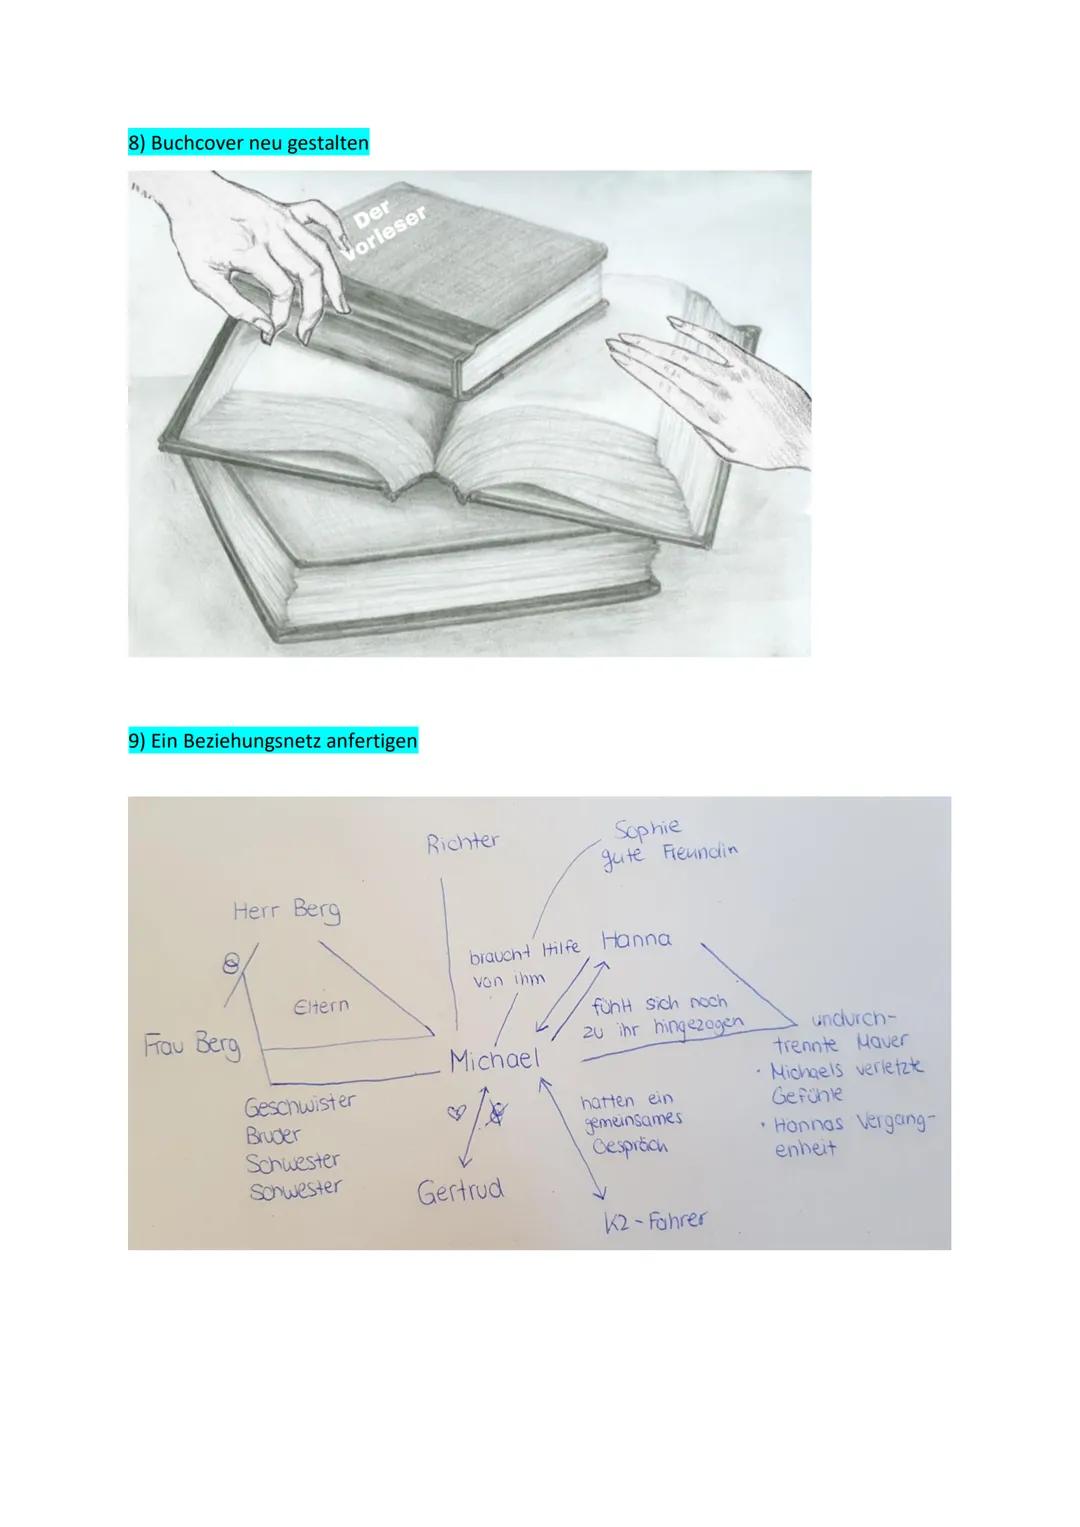 8) Buchcover neu gestalten
Der
Vorleser
9) Ein Beziehungsnetz anfertigen
Richter
Sophie
gute Freundin
Herr Berg
braucht Hilfe
von ihm
Hanna
Eltern
fühlt sich noch
zu ihr hingezogen
Frau Berg
Michael
undurch-
trennte Mauer
· Michaels verletzte
Gefühle
· Hannas Vergang-
enheit
Geschwister
Bruder
Schwester
Schwester
hatten ein
gemeinsames
Gespräch
Gertrud
KZ-Fahrer